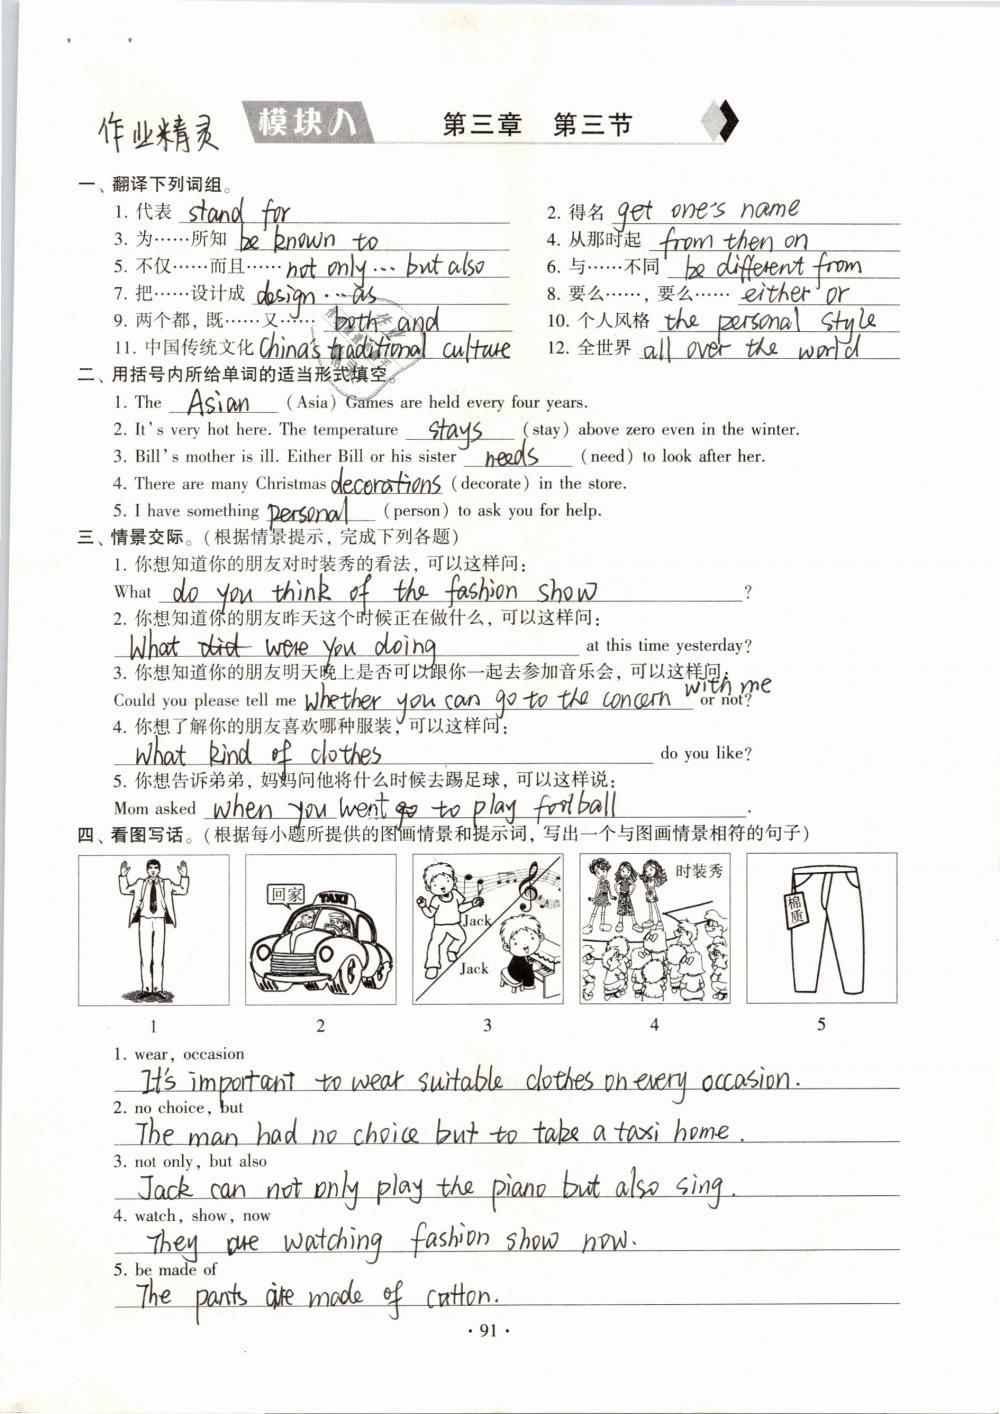 作业精灵 模块八 第三章 第三节
一、翻译下列词组。
1. 代表 stand for 2. 得名 get one's name
3. 为……所知 be known to 4. 从那时起 from then on
5. 不仅……而且…… not only … but also 6. 与……不同 be different from
7. 把……设计成 design … as 8. 要么……，要么…… either or
9. 两个都，既……又…… both and 10. 个人风格 the personal style
11. 中国传统文化 China's traditional culture 12. 全世界 all over the world
二、用括号内所给单词的适当形式填空。
1. The Asian (Asia) Games are held every four years.
2. It's very hot here. The temperature stays (stay) above zero even in the winter.
3. Bill's mother is ill. Either Bill or his sister needs (need) to look after her.
4. There are many Christmas decorations (decorate) in the store.
5. I have something personal (person) to ask you for help.
三、情景交际。（根据情景提示，完成下列各题）
1. 你想知道你的朋友对时装秀的看法，可以这样问：
What do you think of the fashion show ?
2. 你想知道你的朋友昨天这个时候正在做什么，可以这样问：
What did were you doing at this time yesterday?
3. 你想知道你的朋友明天晚上是否可以跟你一起去参加音乐会，可以这样问：
Could you please tell me whether you can go to the concern with me or not?
4. 你想了解你的朋友喜欢哪种服装，可以这样问：
What kind of clothes do you like?
5. 你想告诉弟弟，妈妈问他将什么时候去踢足球，可以这样说：
Mom asked when you went go to play football .
四、看图写话。（根据每小题所提供的图画情景和提示词，写出一个与图画情景相符的句子）
回家 TAXI Jack Jack 时装秀 棉质
1 2 3 4 5
1. wear, occasion
It's important to wear suitable clothes on every occasion.
2. no choice, but
The man had no choice but to take a taxi home.
3. not only, but also
Jack can not only play the piano but also sing.
4. watch, show, now
They are watching fashion show now.
5. be made of
The pants are made of cotton.
· 91 ·